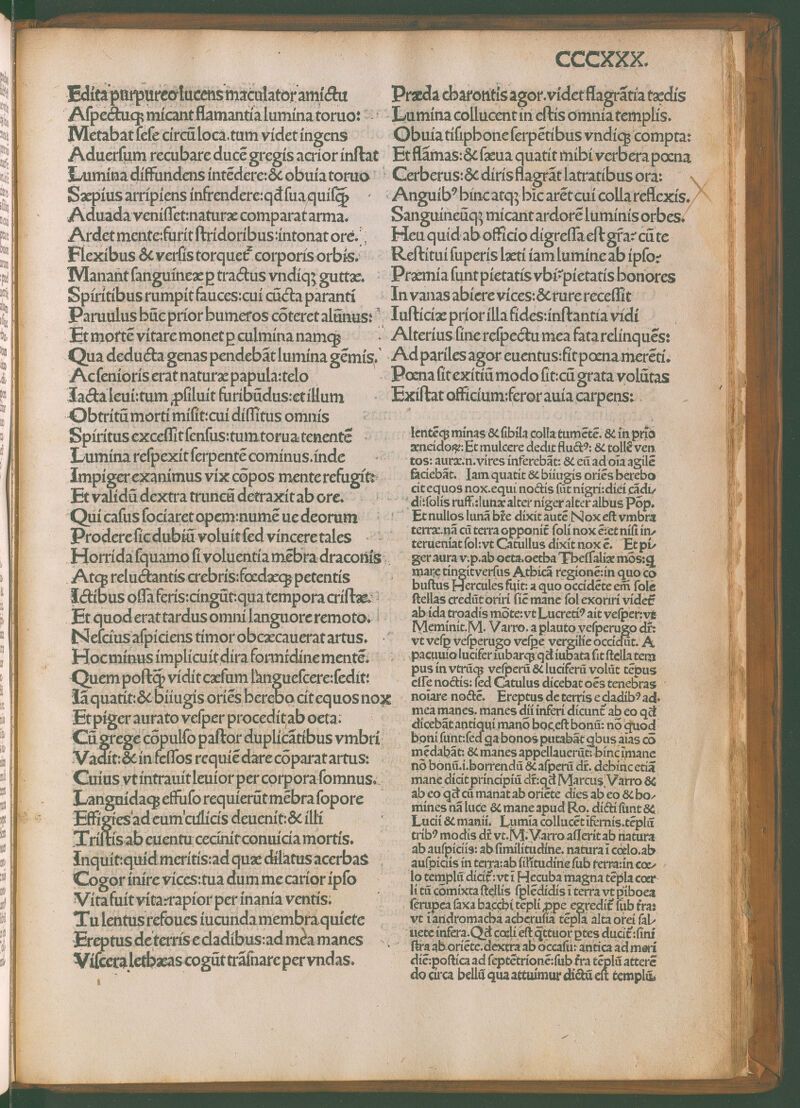 CCCXXX.
Edita purpureo lucens maculatoꝛ amictu
Aspectuqꝫ micant flamantia lumina toruo:
Metabat sese circū loca.tum videt ingens
Aduersum recubare ducē gregis acrior instat
Lumina diffundens intēdere:& obuia toruo
Sæpius arripiens infrendere:qđ sua quisq̄
Ad uada venisset:naturæ comparat arma.
Ardet mente:furit stridoribus:intonat ore.
Flexibus & versis torquet̄ corporis orbis.
Manant sanguineæ ꝑ tractus vndiqꝫ guttæ.
Spiritibus rumpit fauces:cui cūcta paranti
Paruulus hūc prior humeros cōteret alūnus:
Et mortē vitare monet ꝑ culmina namqꝫ
Qua deducta genas pendebāt lumina gēmis.
Ac senioris erat naturæ papula:telo
Iacta leui:tum ꝓsiluit furibūdus:et illum
Obtritū morti misit:cui dissitus omnis
Spiritus excessit sensus:tum torua tenentē
Lumina respexit serpentē cominus.inde
Impiger exanimus vix cōpos mente refugit:
Et validū dextra truncū detraxit ab ore.
Qui casus sociaret opem:numē ue deorum
Prodere sic dubiū voluit sed vincere tales
Horrida squamosi voluentia mēbra draconis
Atqꝫ reluctantis crebris:fœdæqꝫ petentis
Ictibus ossa feris:cingūt:qua tempora cristæ:
Et quod erat tardus omni languore remoto.
Nescius aspiciens timor obcæcauerat artus.
Hoc minus implicuit dira formidine mentē.
Quem postq̄ vidit cæsum languescere:sedit:
Iā quatit:& biiugis oriēs herebo cit equos nox
Et piger aurato vesper procedit ab oeta:
Cū grege cōpulso pastor duplicātibus vmbri
Vadit:& in fessos requiē dare cōparat artus:
Cuius vt intrauit leuior per corpora somnus.
Languidaqꝫ effuso requierūt mēbra sopore
Effigies ad eum culicis deuenit:& illi
Tristis ab euentu cecinit conuicia mortis.
Inquit:quid meritis:ad quæ dilatus acerbas
Cogor inire vices:tua dum me carior ipso
Vita fuit vita:rapior per inania ventis:
Tu lentus refoues iucunda membra quiete
Ereptus de terris e cladibus:ad mea manes
Viscera lethæas cogūt trāsnare per vndas.
Præda charontis agor.videt flagrātia tædis
Lumina collucent in estis omnia templis.
Obuia tisiphone serpētibus vndiqꝫ compta:
Et flāmas:& sæua quatit mihi verbera pœna
Cerberus:& diris flagrāt latratibus ora:
Anguibꝰ hinc atqꝫ hic arēt cui colla reflexis.
Sanguineūqꝫ micant ardorē luminis orbes.
Heu quid ab officio digressa est gr̄a: cū te
Restitui superis læti iam lumine ab ipso:
Præmia sunt pietatis vbi:pietatis honores
In vanas abiere vices:& rure recessit
Iusticiæ prior illa fides:instantia vidi
Alterius sine respectu mea fata relinquēs:
Ad pariles agor euentus:fit pœna merēti.
Pœna sit exitiū modo sit:cū grata volūtas
Existat officium:feror auia carpens:
lentēqꝫ minas & sibila colla tumētē. & in prīo
æneidoꝝ:Et mulcere dedit fluctꝰ: & tollē ven
tos: auræ.n.vires inferebāt: & eū ad oīa agilē
faciebāt. Iam quatit & biiugis oriēs herebo
cit equos nox.equi noctis sūt nigri:diei cādi/
di:solis ruff.:lunæ alter niger alter albus Pop.
Et nullos lunā hr̄e dixit autē Nox est vmbra
terræ.nā cū terra opponit̄ soli nox ē:et nisi in/
terueniat sol:vt Catullus dixit nox ē. Et pi/
ger aura v.p.ab oeta.oetha Thessaliæ mōs:q
mare tingit versus Athicā regionē:in quo co
bustus Hercules fuit: a quo occidēte em̄ sole
stellas credūt oriri sic̄ mane sol exoriri videt̄
ab ida troadis mōte:vt Lucretꝰ ait vesper:vt
Meminit.M. Varro. a plauto vesperugo dr̄:
vt vesꝑ vesperugo vespe vergilie occidūt. A
pacuuio lucifer iubarqꝫ qđ iubata sit stella tem
pus in vtrūqꝫ vesperū & luciferū volūt tēpus
esse noctis: sed Catulus dicebat oēs tenebras
noiare noctē. Ereptus de terris e dadibꝰ ad.
mea manes. manes dii inferi dicunt̄ ab eo qđ
dicebāt antiqui manō hoc est bonū: nō quod
boni sunt:sed ga bonos putabāt qbus aīas cō
mēdabāt: & manes appellauerūt: hinc imane
nō bonū.i.horrendū & asperū dr̄. dehinc etiā
mane dicit principiū dr̄:qđ Marcus Varro &
ab eo qđ cū manat ab oriēte dies ab eo & ho/
mines nā luce & mane apud Ro. dicti sunt &
Lucii & manii. Lumīa collucēt ifernis.tēplū
tribꝰ modis dr̄ vt.M.Varro asserit ab natura
ab auspiciis: ab similitudine. natura ī cœlo.ab
auspiciis in terra:ab silitudine sub terra:in cœ/
lo templū dicit̄:vt ī Hecuba magna tēpla cœ
li tū cōmixta stellis splēdidis ī terra vt piboea
serupea saxa bacchi tēpli ꝓpe egredit̄ sub tra:
vt ī andromacha acherusia tēpla alta orci sal/
uete infera.Qđ cœli est qttuor ptes ducit̄:sini
stra ab oriēte.dextra ab occasu: antica ad meri
diē:postica ad septētrionē:sub tr̄a tēplū atterē
do circa bellū qua attuimur dictū est templū.